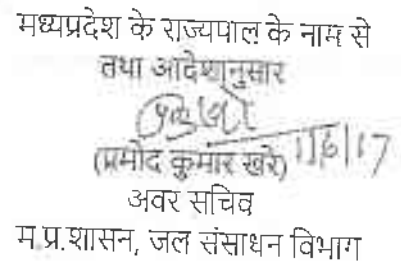 मध्यप्रदेश के राज्यपाल के नाम से
तथा आदेशानुसार
(प्रमोद कुमार खरे) 1|6|17
अवर सचिव
म.प्र.शासन, जल संसाधन विभाग